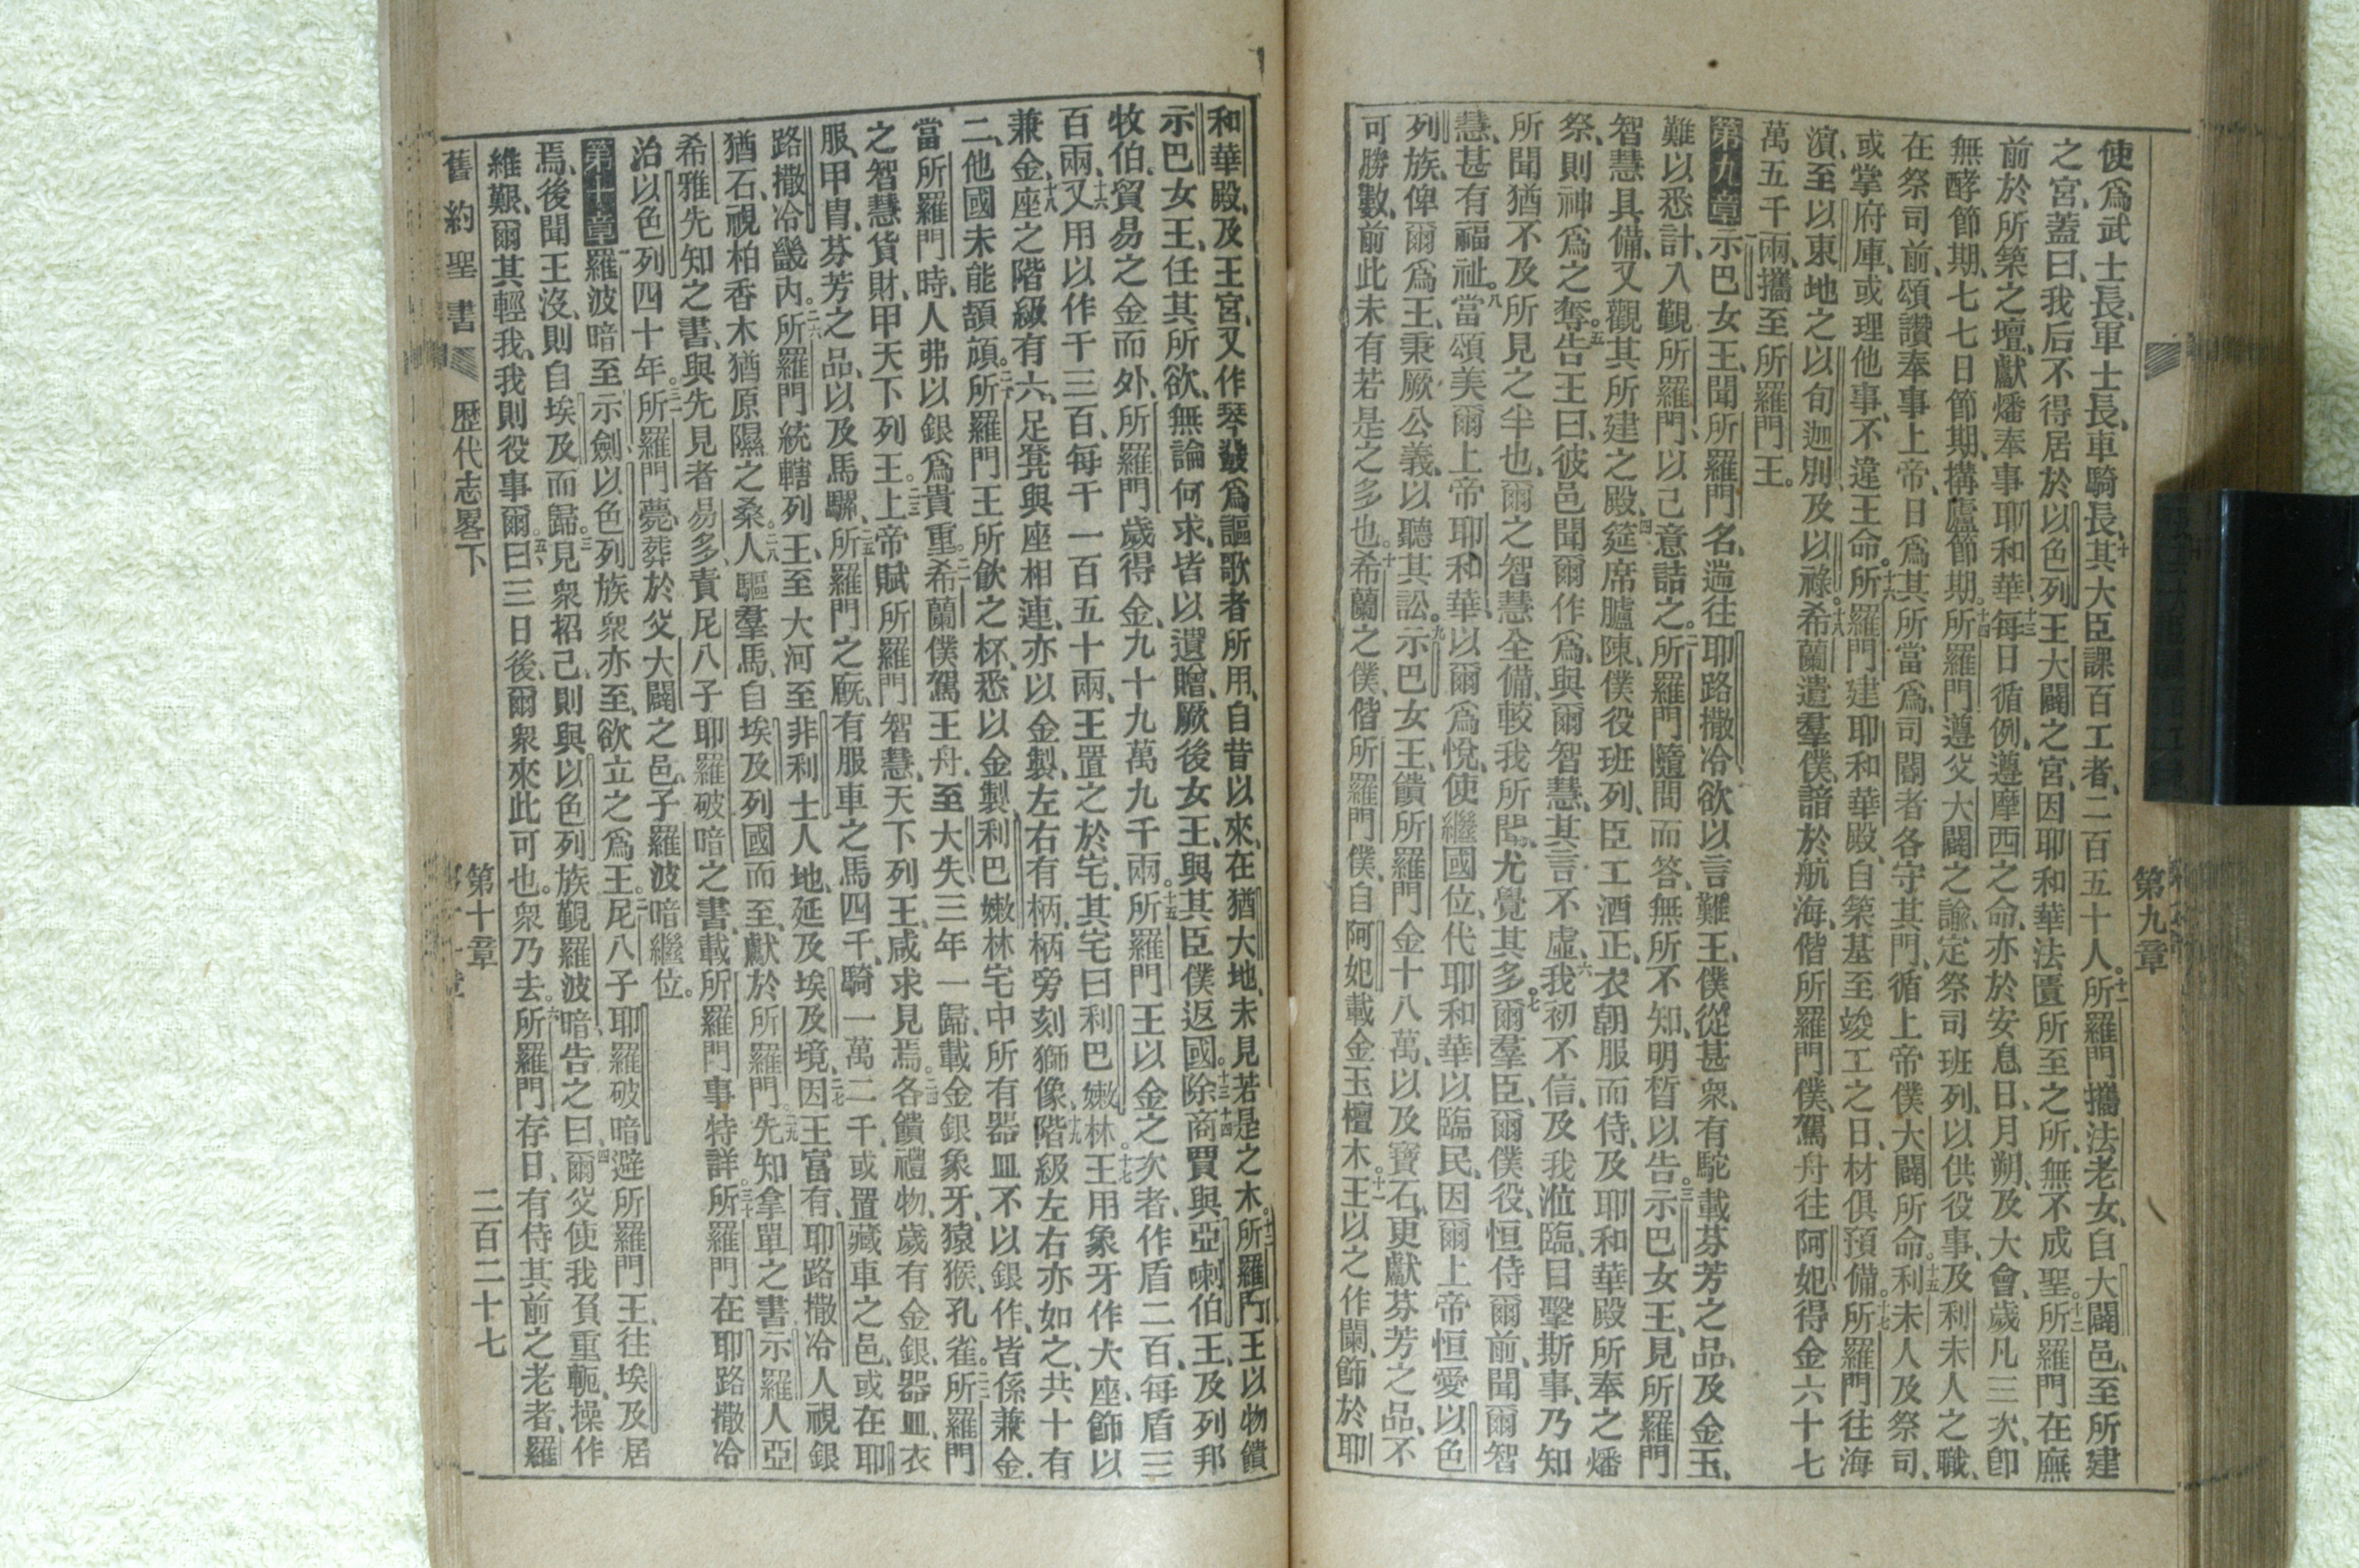 第九章
使爲武士長、軍士長、車騎長、十其大臣課百工者、二百五十人。十一所羅門攜法老女、自大闢邑、至所建
之宮、蓋曰、我后不得居於以色列王大闢之宮、因耶和華法匱所至之所、無不成聖。十二所羅門在廡
前於所築之壇、獻燔奉事耶和華、十三每日循例、遵摩西之命、亦於安息日、月朔、及大會、歲凡三次、卽
無酵節期、七七日節期、搆廬節期。十四所羅門遵父大闢之諭、定祭司班列、以供役事、及利未人之職、
在祭司前、頌讚奉事上帝、日爲其所當爲、司閽者各守其門、循上帝僕大闢所命。十五利未人及祭司、
或掌府庫、或理他事、不違王命。十六所羅門建耶和華殿、自築基至竣工之日、材俱預備。十七所羅門往海
濱、至以東地之以旬迦別、及以祿。十八希蘭遣羣僕、諳於航海、偕所羅門僕、駕舟往阿妃、得金六十七
萬五千兩、攜至所羅門王。
第九章 一示巴女王、聞所羅門名、遄往耶路撒冷、欲以言難王、僕從甚衆、有駝載芬芳之品、及金玉、
難以悉計、入覲所羅門、以己意詰之。二所羅門隨問而答、無所不知、明晳以告。三示巴女王、見所羅門
智慧具備、又觀其所建之殿、四筵席臚陳、僕役班列、臣工酒正、衣朝服而侍、及耶和華殿所奉之燔
祭、則神爲之奪。五告王曰、彼邑聞爾作爲、與爾智慧、其言不虛、六我初不信、及我涖臨、目擊斯事、乃知
所聞猶不及所見之半也、爾之智慧全備、較我所聞、尤覺其多。七爾羣臣、爾僕役、恒侍爾前、聞爾智
慧、甚有福祉。八當頌美爾上帝耶和華、以爾爲悅、使繼國位、代耶和華以臨民、因爾上帝恒愛以色
列族、俾爾爲王、秉厥公義、以聽其訟。九示巴女王、饋所羅門金十八萬、以及寶石、更獻芬芳之品、不
可勝數、前此未有若是之多也。十希蘭之僕、偕所羅門僕、自阿妃載金玉檀木。十一王以之作闌、飾於耶
和華殿、及王宮、又作琴瑟、爲謳歌者所用、自昔以來、在猶大地、未見若是之木。十二所羅門王以物饋
示巴女王、任其所欲、無論何求、皆以遺贈、厥後女王、與其臣僕返國。十三十四除商賈與亞喇伯王、及列邦
牧伯、貿易之金而外、所羅門歲得金、九十九萬九千兩。十五所羅門王以金之次者、作盾二百、每盾三
百兩、十六又用以作干三百、每干一百五十兩、王置之於宅、其宅曰利巴嫩林。十七王用象牙作大座、飾以
兼金、十八座之階級有六、足凳與座相連、亦以金製、左右有柄、柄旁刻獅像、十九階級左右亦如之、共十有
二、他國未能頡頏。二十所羅門王所飲之杯、悉以金製、利巴嫩林宅中所有器皿不以銀作、皆係兼金、
當所羅門時、人弗以銀爲貴重。二一希蘭僕駕王舟、至大失、三年一歸、載金銀象牙、猿猴、孔雀。二二所羅門
之智慧貨財、甲天下列王。二三上帝賦所羅門智慧、天下列王、咸求見焉。二四各饋禮物、歲有金銀、器皿、衣
服、甲冑、芬芳之品、以及馬騾、二五所羅門之廐、有服車之馬四千、騎一萬二千、或置藏車之邑、或在耶
路撒冷畿內。二六所羅門統轄列王、至大河至非利士人地、延及埃及境、二七因王富有、耶路撒冷人視銀
猶石、視柏香木猶原隰之桑。二八人驅羣馬、自埃及列國而至、獻於所羅門。二九先知拿單之書、示羅人亞
希雅先知之書、與先見者易多、責尼八子耶羅破暗之書、載所羅門事特詳。三十所羅門在耶路撒冷
治以色列四十年。三一所羅門薨、葬於父大闢之邑、子羅波暗繼位。
第十章 一羅波暗至示劍、以色列族衆亦至、欲立之爲王。二尼八子耶羅破暗避所羅門王、往埃及居
焉、後聞王沒、則自埃及而歸。三見衆招己、則與以色列族覲羅波暗告之曰、四爾父使我負重軛、操作
維艱、爾其輕我、我則役事爾。五曰、三日後、爾衆來此可也。衆乃去。六所羅門存日、有侍其前之老者、羅
舊約聖書 歷代志畧下 第十章 二百二十七